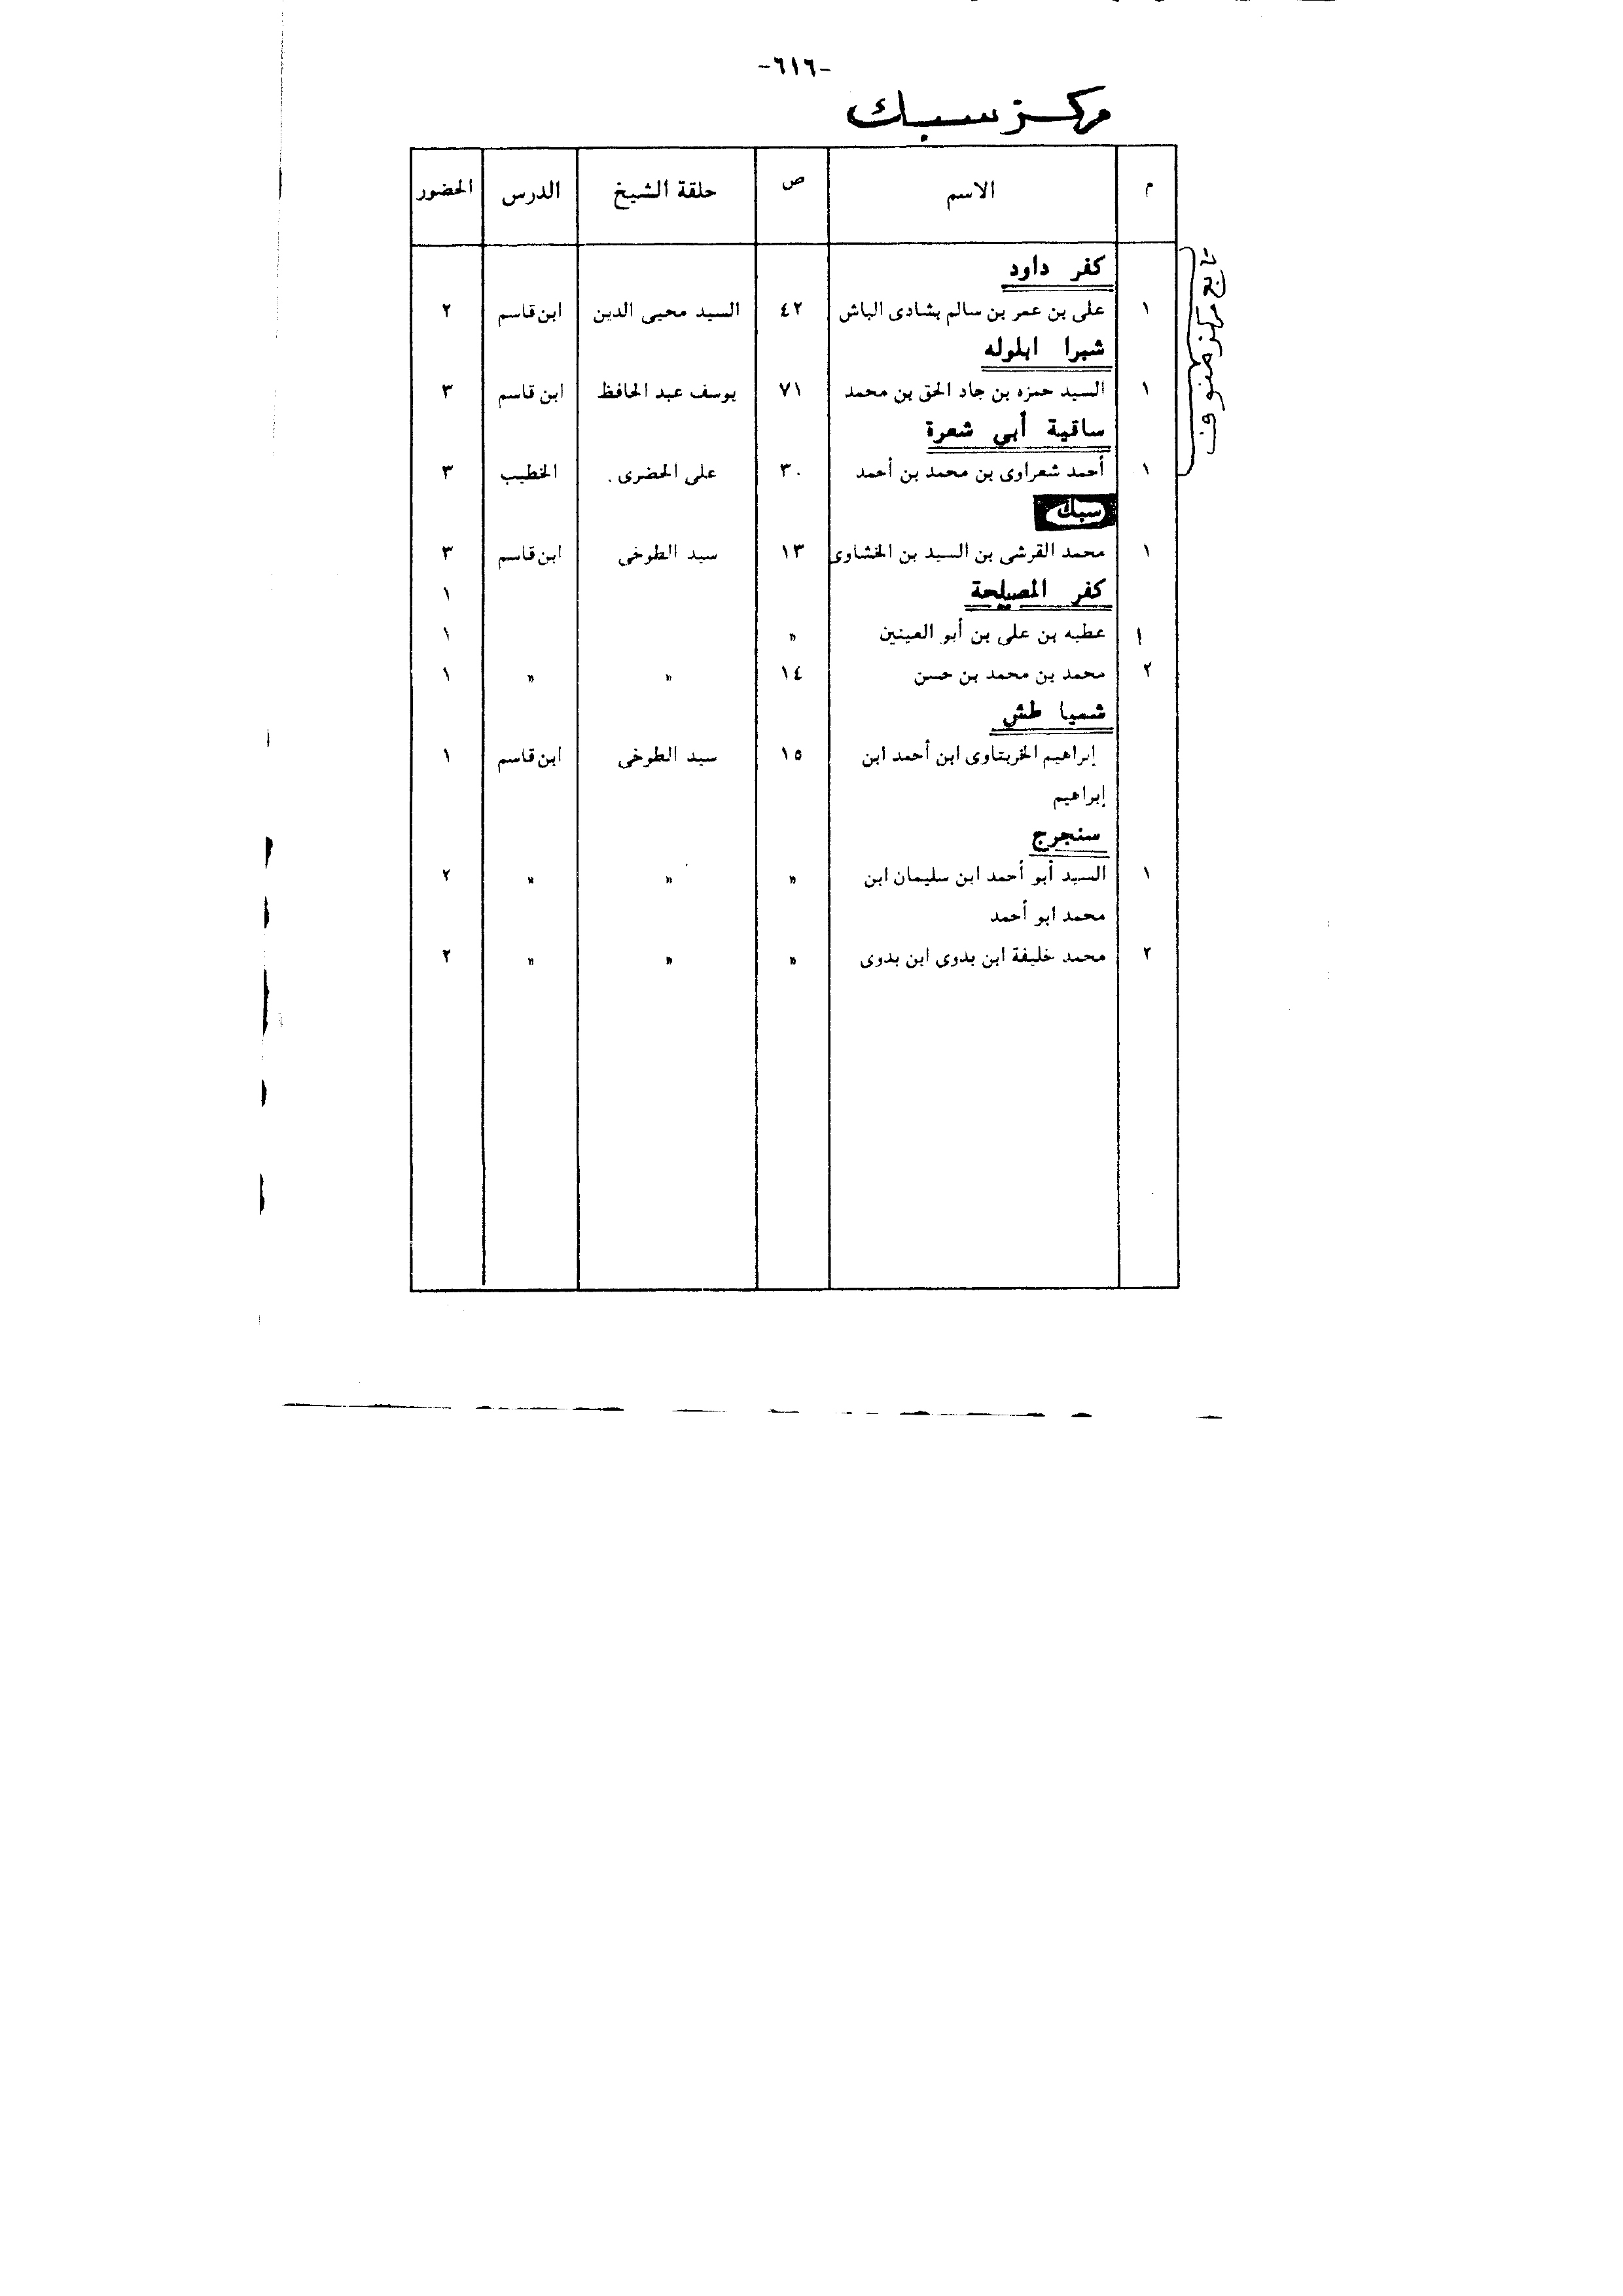 -٦١٦-
مركز سبك
م الاسم ص حلقة الشيخ الدرس الحضور
تابع مركز منوف
كفر داود
١ على بن عمر بن سالم بشادى الباش ٤٢ السيد محيى الدين ابن قاسم ٢
شبرا ابلوله
١ السيد حمزه بن جاد الحق بن محمد ٧١ يوسف عبد الحافظ ابن قاسم ٣
ساقية أبى شعرة
١ أحمد شعراوى بن محمد بن أحمد ٣٠ على الحضرى . الخطيب ٣
سبك
١ محمد القرشى بن السيد بن الخشاوى ١٣ سيد الطوخى ابن قاسم ٣
كفر المصيلحة ١
١ عطيه بن على بن أبو العينين " ١
٢ محمد بن محمد بن حسن ١٤ " " ١
شميا طش
إبراهيم الخربتاوى ابن أحمد ابن ١٥ سيد الطوخى ابن قاسم ١
إبراهيم
سنجرج
١ السيد أبو أحمد ابن سليمان ابن " " " ٢
محمد ابو أحمد
٢ محمد خليفة ابن بدوى ابن بدوى " " " ٢